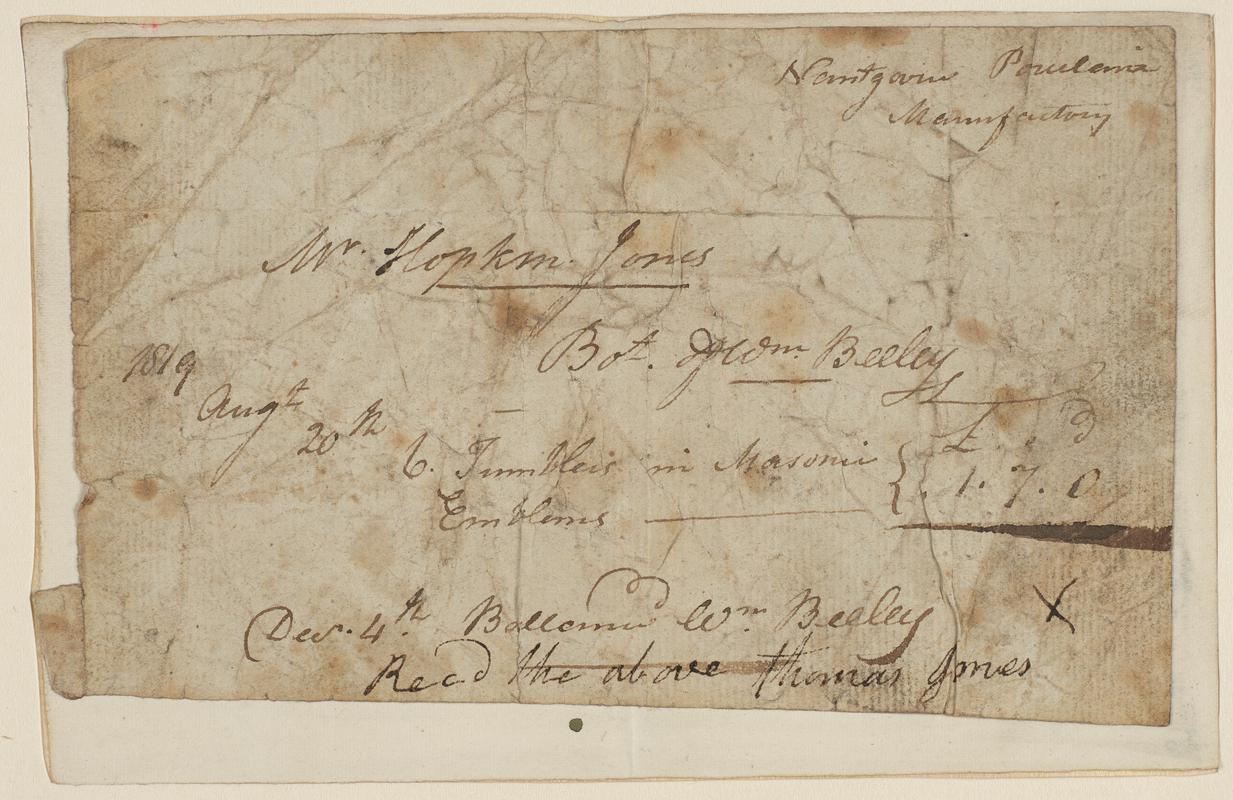 Nantgarw Porcelain
Manufactory
Mr. Hopkin Jones
Bot. of Wm. Beeley
1819
Augt
20th
£ . d
6. Tumblers in Masonic
1. 7. 0
Emblems
Decr. 4th. Wm Beeley
Recd the above thomas Jones
X